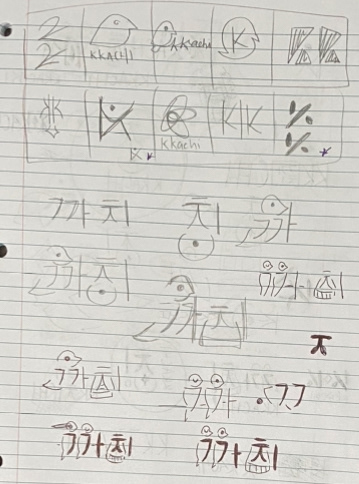 KKACHI kkachi K K K
K K K kkachi K K
까치 치 까
까치 까치
까치
ㅊ
까치 까 ㄲ
까치 까치